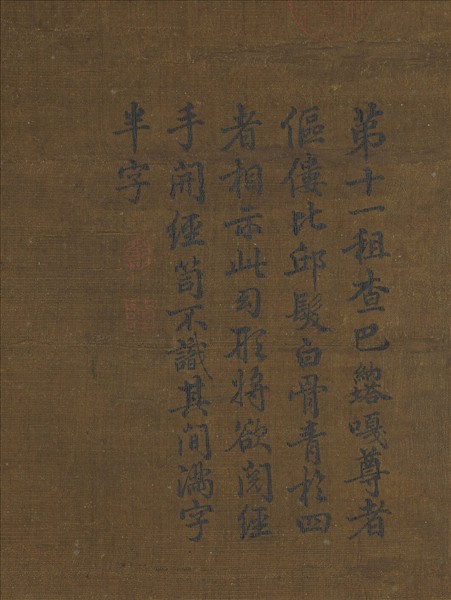 第十一租查巴納塔嘎尊者
傴僂比邱髮白骨青於四
者相示此幻形將欲閱經
手開經笥不識其間滿字
半字